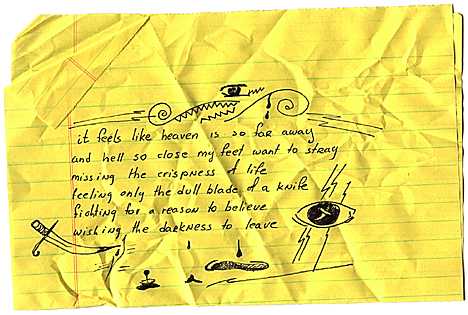 it feels like heaven is so far away
and hell so close my feet want to stray
missing the crispness of life
feeling only the dull blade of a knife
fighting for a reason to believe
wishing the darkness to leave